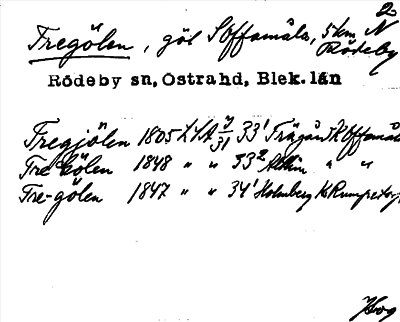 2
Tregölen, göl Soffamåla, 5 km N Rödeby
Rödeby sn, Östra hd, Blek. län
Tregjölen 1805 LSA 7/31 33¹ Trägån
Tre-gölen 1848 " " 33²
Tre-gölen 1847 " " 34¹ Holmberg